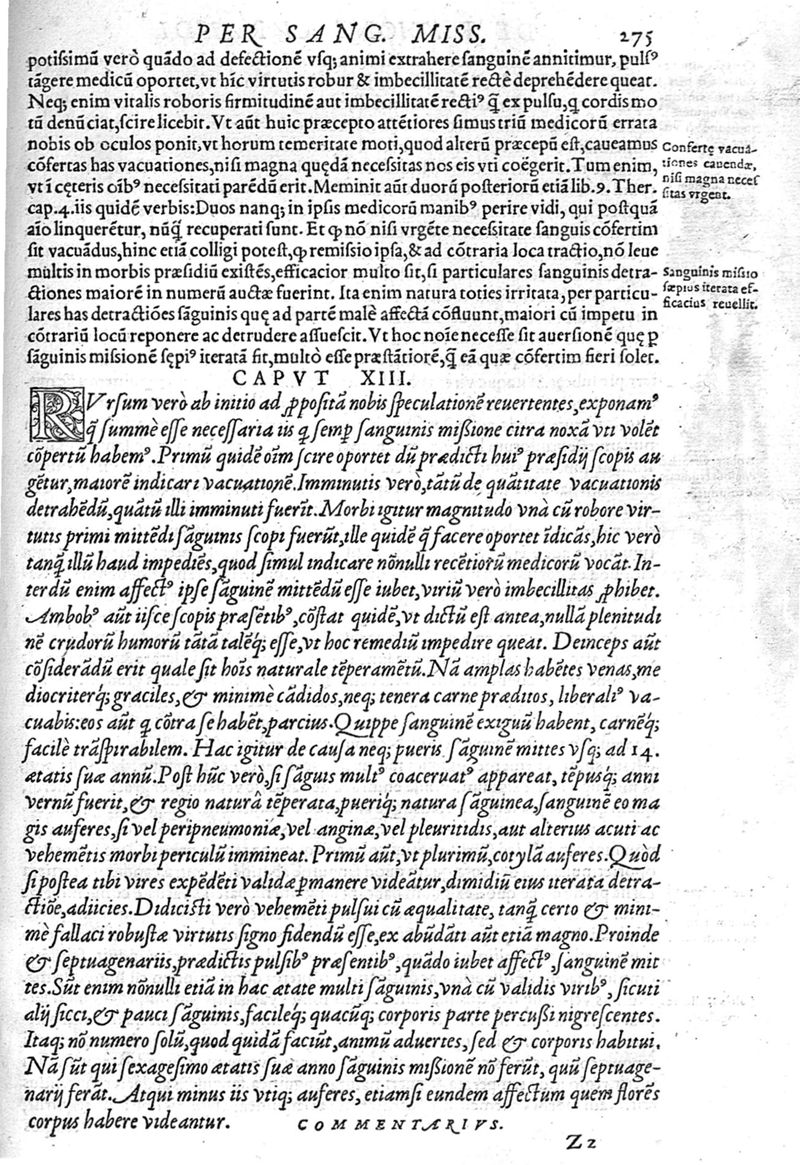 PER SANG. MISS. 275
potissimũ verò quãdo ad defectionẽ vsq; animi extrahere sanguinẽ annitimur, pulsꝰ
tãgere medicũ oportet, vt hîc virtutis robur & imbecillitatẽ rectè deprehẽdere queat.
Neq; enim vitalis roboris firmitudinẽ aut imbecillitatẽ rectiꝰ q̃ ex pulsu, q cordis mo
tũ denũciat, scire licebit. Vt aũt huic præcepto attẽtiores simus triũ medicorũ errata
nobis ob oculos ponit, vt horum temeritate moti, quod alterũ præcepũ est, caveamus
cõfertas has vacuationes, nisi magna quędã necessitas nos eis vti coëgerit. Tum enim,
vt ĩ cęteris oĩbꝰ necessitati parẽdũ erit. Meminit aũt duorũ posteriorũ etiã lib. 9. Ther.
cap. 4. iis quidẽ verbis: Duos nanq; in ipsis medicorũ manibꝰ perire vidi, qui postquã
aĩo linquerẽtur, nũq̃ recuperati sunt. Et ꝙ nõ nisi vrgẽte necessitate sanguis cõfertim
sit vacuãdus, hinc etiã colligi potest, ꝙ remissio ipsa, & ad cõtraria loca tractio, nõ leue
multis in morbis præsidiũ existẽs, efficacior multo sit, si particulares sanguinis detra-
ctiones maiorẽ in numerũ auctæ fuerint. Ita enim natura toties irritata, per particu-
lares has detractiões sãguinis quę ad partẽ malè affectã cõfluunt, maiori cũ impetu in
cõtrariũ locũ reponere ac detrudere assuescit. Vt hoc noĩe necesse sit auersionẽ quę ꝑ
sãguinis missionẽ sępiꝰ iteratã fit, multò esse præstãtiorẽ, q̃ eã quæ cõfertim fieri solet.
Confertę vacua-
tiones cauendæ,
nisi magna neces
sitas vrgent.
Sanguinis missio
sæpius iterata ef-
ficacius reuellit.
CAPVT XIII.
RVrsum verò ab initio ad ꝓpositã nobis speculationẽ reuertentes, exponamꝰ
q̃ summè esse necessaria iis q semꝑ sanguinis mißione citra noxã vti volẽt
cõpertũ habemꝰ. Primũ quidẽ oĩm scire oportet dũ prædicti huiꝰ præsidij scopis au
gẽtur, maiorẽ indicari vacuationẽ. Imminutis verò, tãtũ de quãtitate vacuationis
detrahẽdũ, quãtũ illi imminuti fuerĩt. Morbi igitur magnitudo vnà cũ robore vir-
tutis primi mittẽdi sãguinis scopi fuerũt, ille quidẽ q̃ facere oportet ĩdicãs, hic verò
tanq̃ illũ haud impediẽs, quod simul indicare nõnulli recẽtiorũ medicorũ vocãt. In-
terdũ enim affectꝰ ipse sãguinẽ mittẽdũ esse iubet, viriũ verò imbecillitas ꝓhibet.
Ambobꝰ aũt iisce scopis præsẽtibꝰ, cõstat quidẽ, vt dictũ est antea, nullã plenitudi
nẽ crudorũ humorũ tãtã talẽq; esse, vt hoc remediũ impedire queat. Deinceps aũt
cõsiderãdũ erit quale sit hoĩs naturale tẽperamẽtũ. Nã amplas habẽtes venas, me
diocriterq; graciles, & minimè cãdidos, neq; tenera carne præditos, liberaliꝰ va-
cuabis: eos aũt q cõtra se habẽt, parcius. Quippe sanguinẽ exiguũ habent, carnẽq;
facilè trãspirabilem. Hac igitur de causa neq; pueris sãguinẽ mittes vsq; ad 14.
ætatis suæ annũ. Post hũc verò, si sãguis multꝰ coaceruatꝰ appareat, tẽpusq; anni
vernũ fuerit, & regio naturâ tẽperata, pueriq; natura sãguinea, sanguinẽ eo ma
gis auferes, si vel peripneumoniæ, vel anginæ, vel pleuritidis, aut alterius acuti ac
vehemẽtis morbi periculũ immineat. Primũ aũt, vt plurimũ, cotylã auferes. Quòd
si postea tibi vires expẽdẽti validæ ꝑmanere videãtur, dimidiũ eius iterata detra-
ctiõe, adiicies. Didicisti verò vehemẽti pulsui cũ æqualitate, tanq̃ certo & mini-
mè fallaci robustæ virtutis signo fidendũ esse, ex abũdãti aũt etiã magno. Proinde
& septuagenariis, prædictis pulsibꝰ præsentibꝰ, quãdo iubet affectꝰ, sanguinẽ mit
tes. Sũt enim nõnulli etiã in hac ætate multi sãguinis, vnà cũ validis viribꝰ, sicuti
alij sicci, & pauci sãguinis, facileq; quacũq; corporis parte percußi nigrescentes.
Itaq; nõ numero solũ, quod quidã faciũt, animũ aduertes, sed & corporis habitui.
Nã sũt qui sexagesimo ætatis suæ anno sãguinis mißionẽ nõ ferũt, quũ septuage-
narij ferãt. Atqui minus iis vtiq; auferes, etiamsi eundem affectum quem florẽs
corpus habere videantur. COMMENTARIVS.
Z2